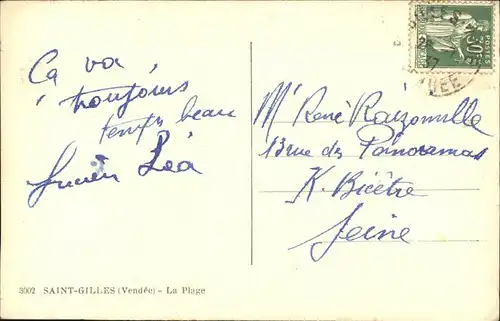 Ça va
toujours
temps beau
Lucien Léa
Mr René Raizonville
13 rue des Panoramas
K. Bicêtre
Seine
30c
POSTES
3002 SAINT-GILLES (Vendée) - La Plage